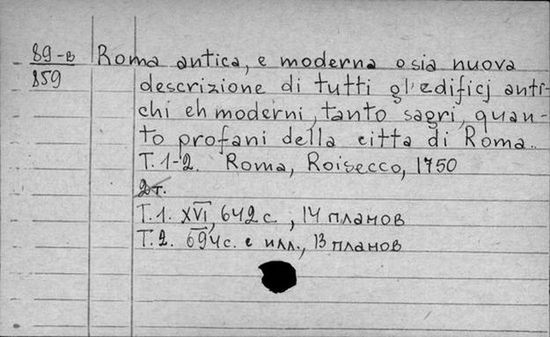 89-в
859
Roma antica, e moderna o sia nuova
descrizione di tutti gl'edificj anti-
chi eh moderni, tanto sagri, quan-
to profani della citta di Roma..
T. 1-2. Roma, Roisecco, 1750
2т.
Т. 1. XVI, 642 с., 14 планов
Т. 2. 694 с. с илл., 13 планов